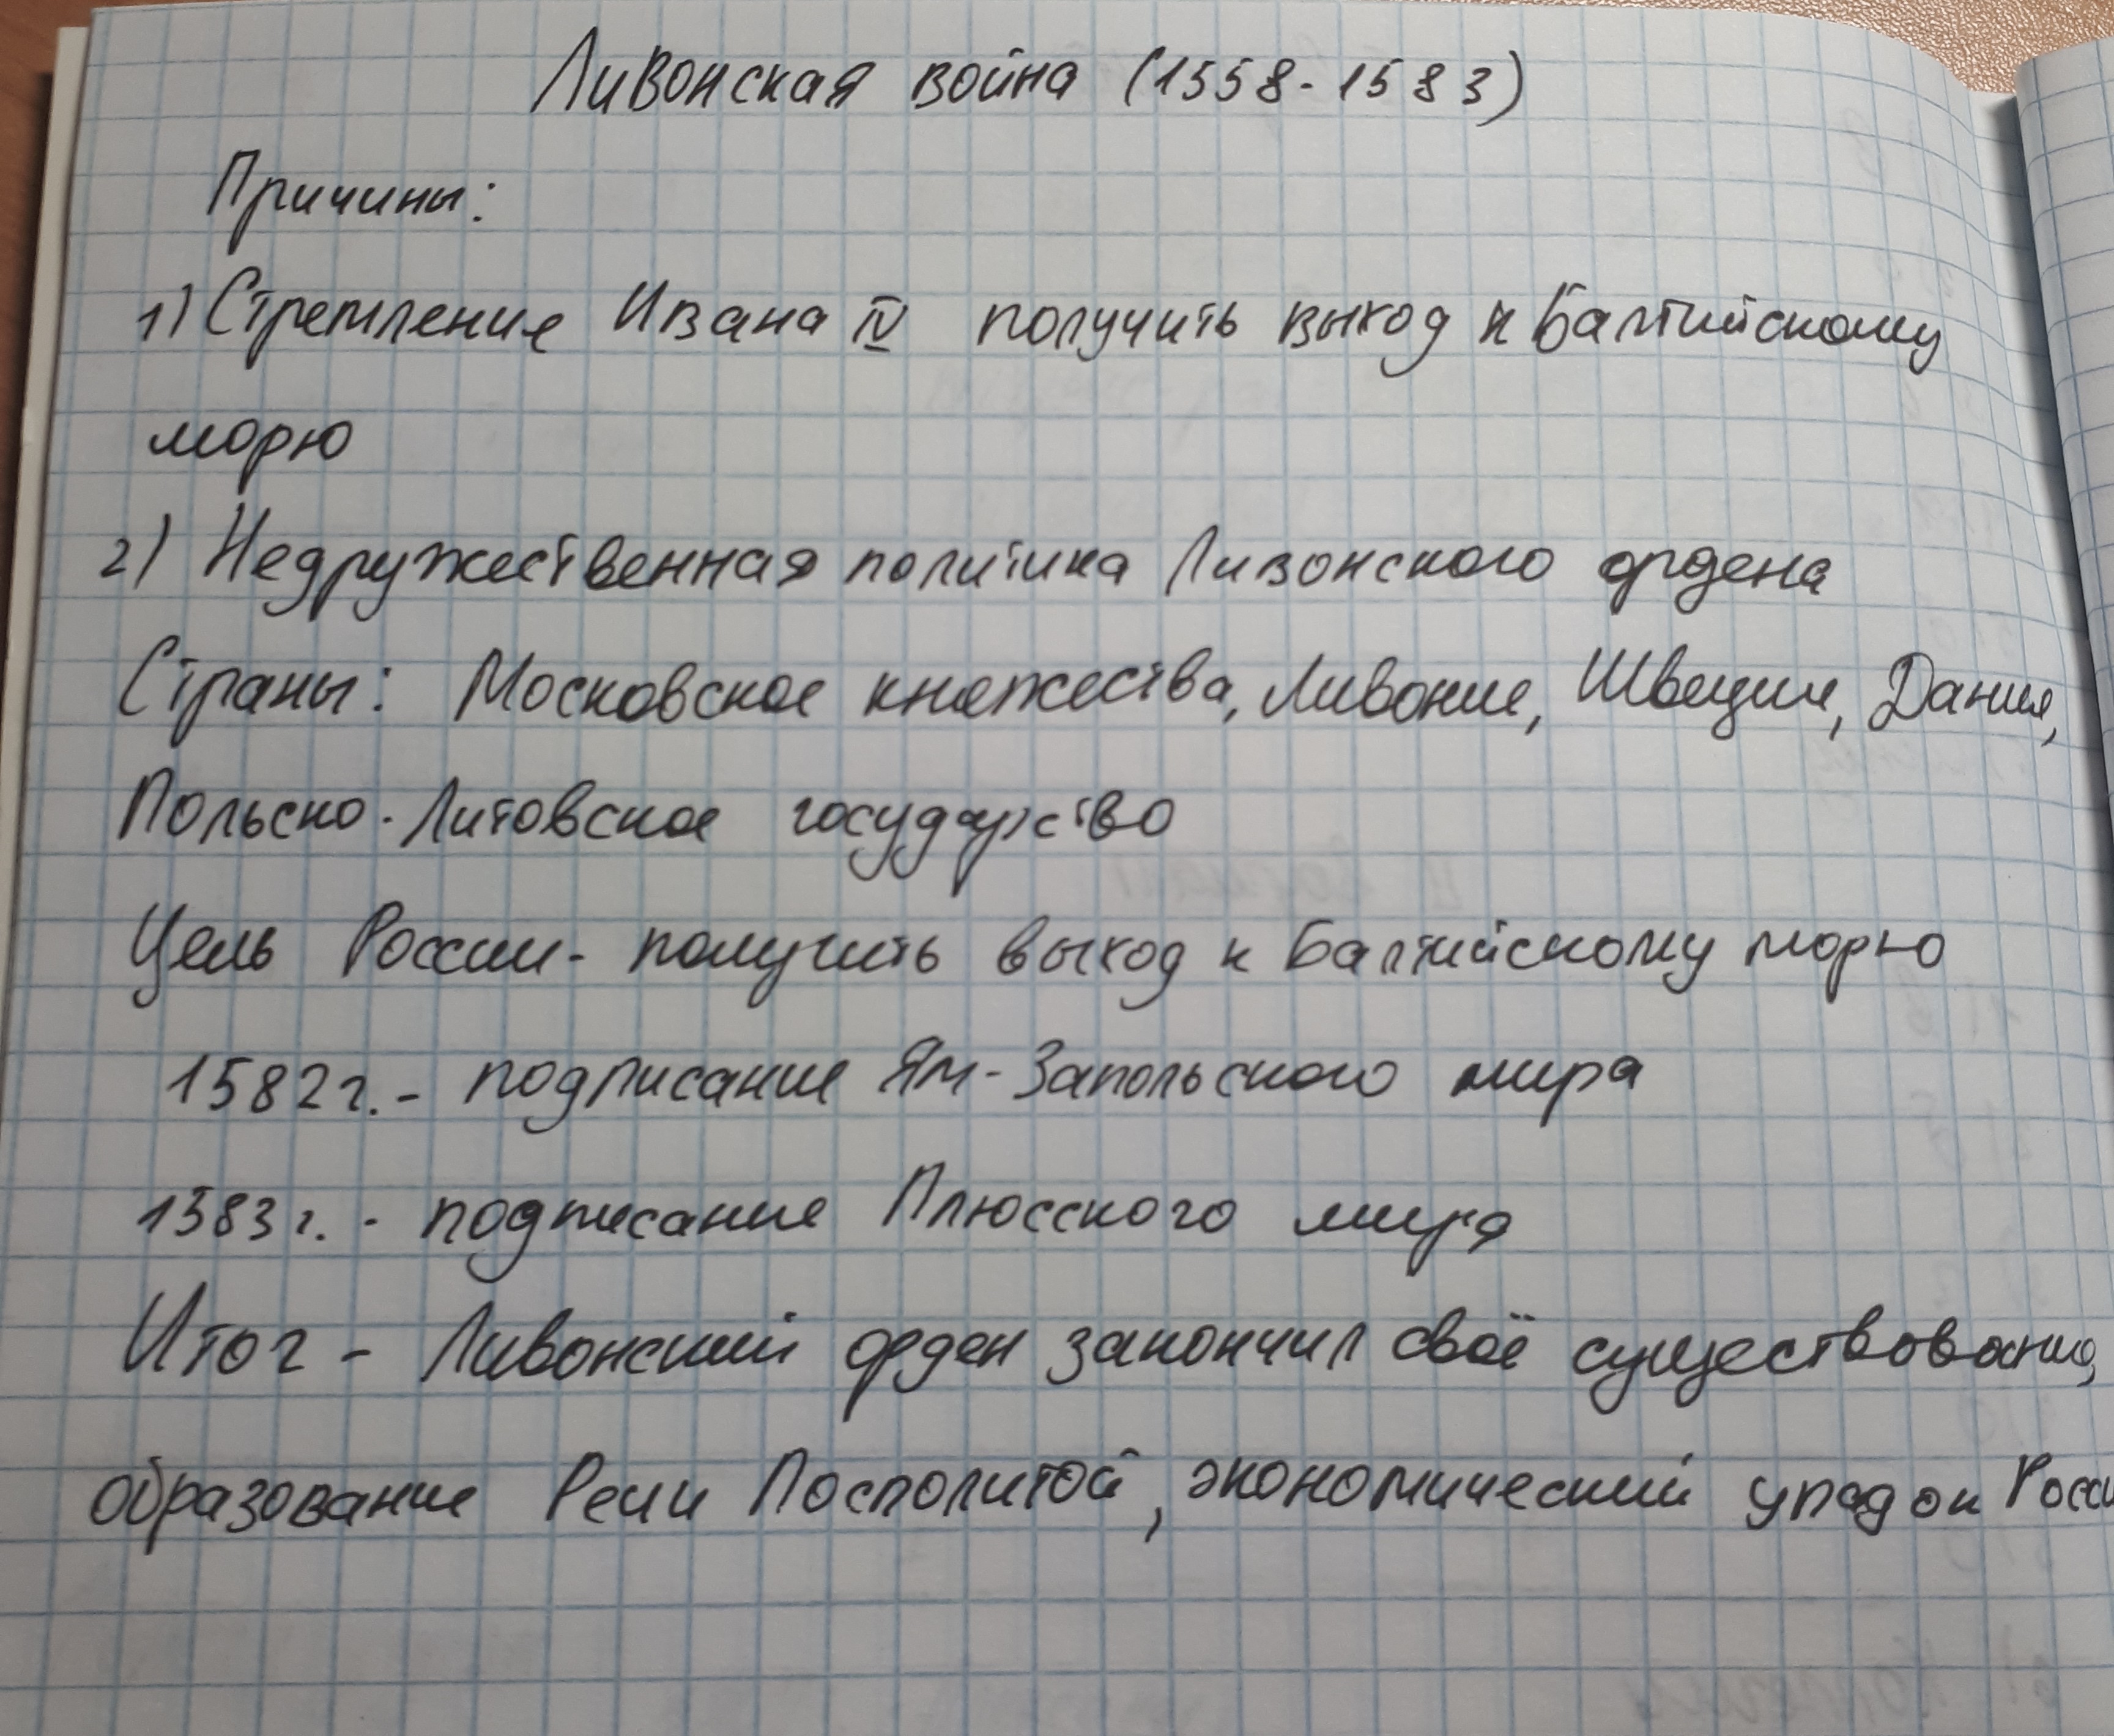 Ливонская война (1558-1583)
Причины:
1) Стремление Ивана IV получить выход к Балтийскому
морю
2) Недружественная политика Ливонского ордена
Страны: Московское княжества, Ливония, Швеция, Дания,
Польско-Литовское государство
Цель России - получить выход к Балтийскому морю
1582 г. - подписание Ям-Запольского мира
1583 г. - подписание Плюсского мира
Итог - Ливонский орден закончил своё существование,
образование Речи Посполитой, экономический упадок Росси